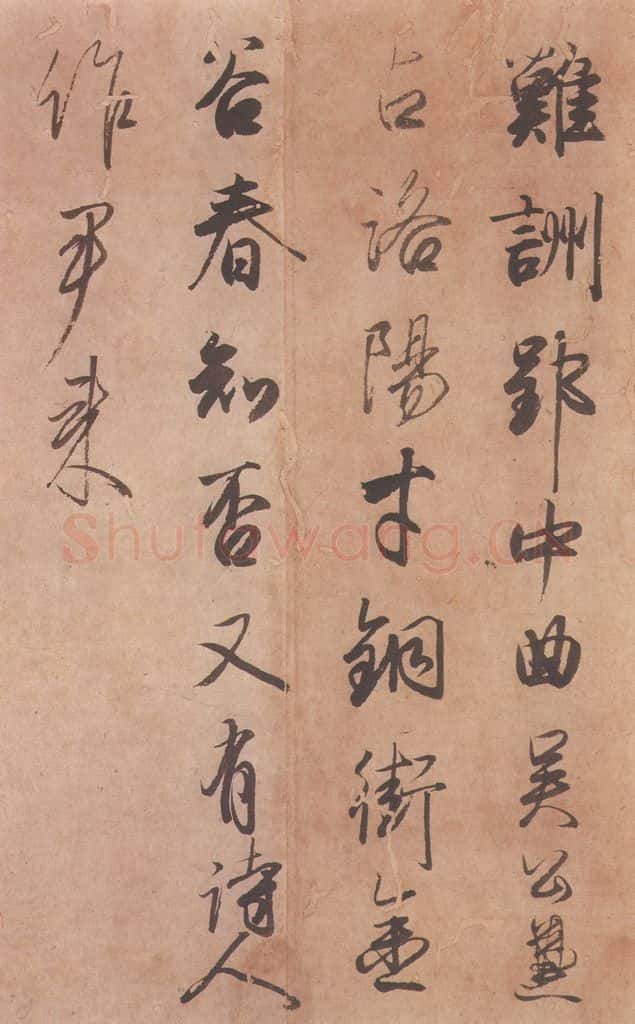 難詶郢中曲吳公
占洛陽才銅街金
谷春知否又有詩人
作尹來
Shufawang.cn